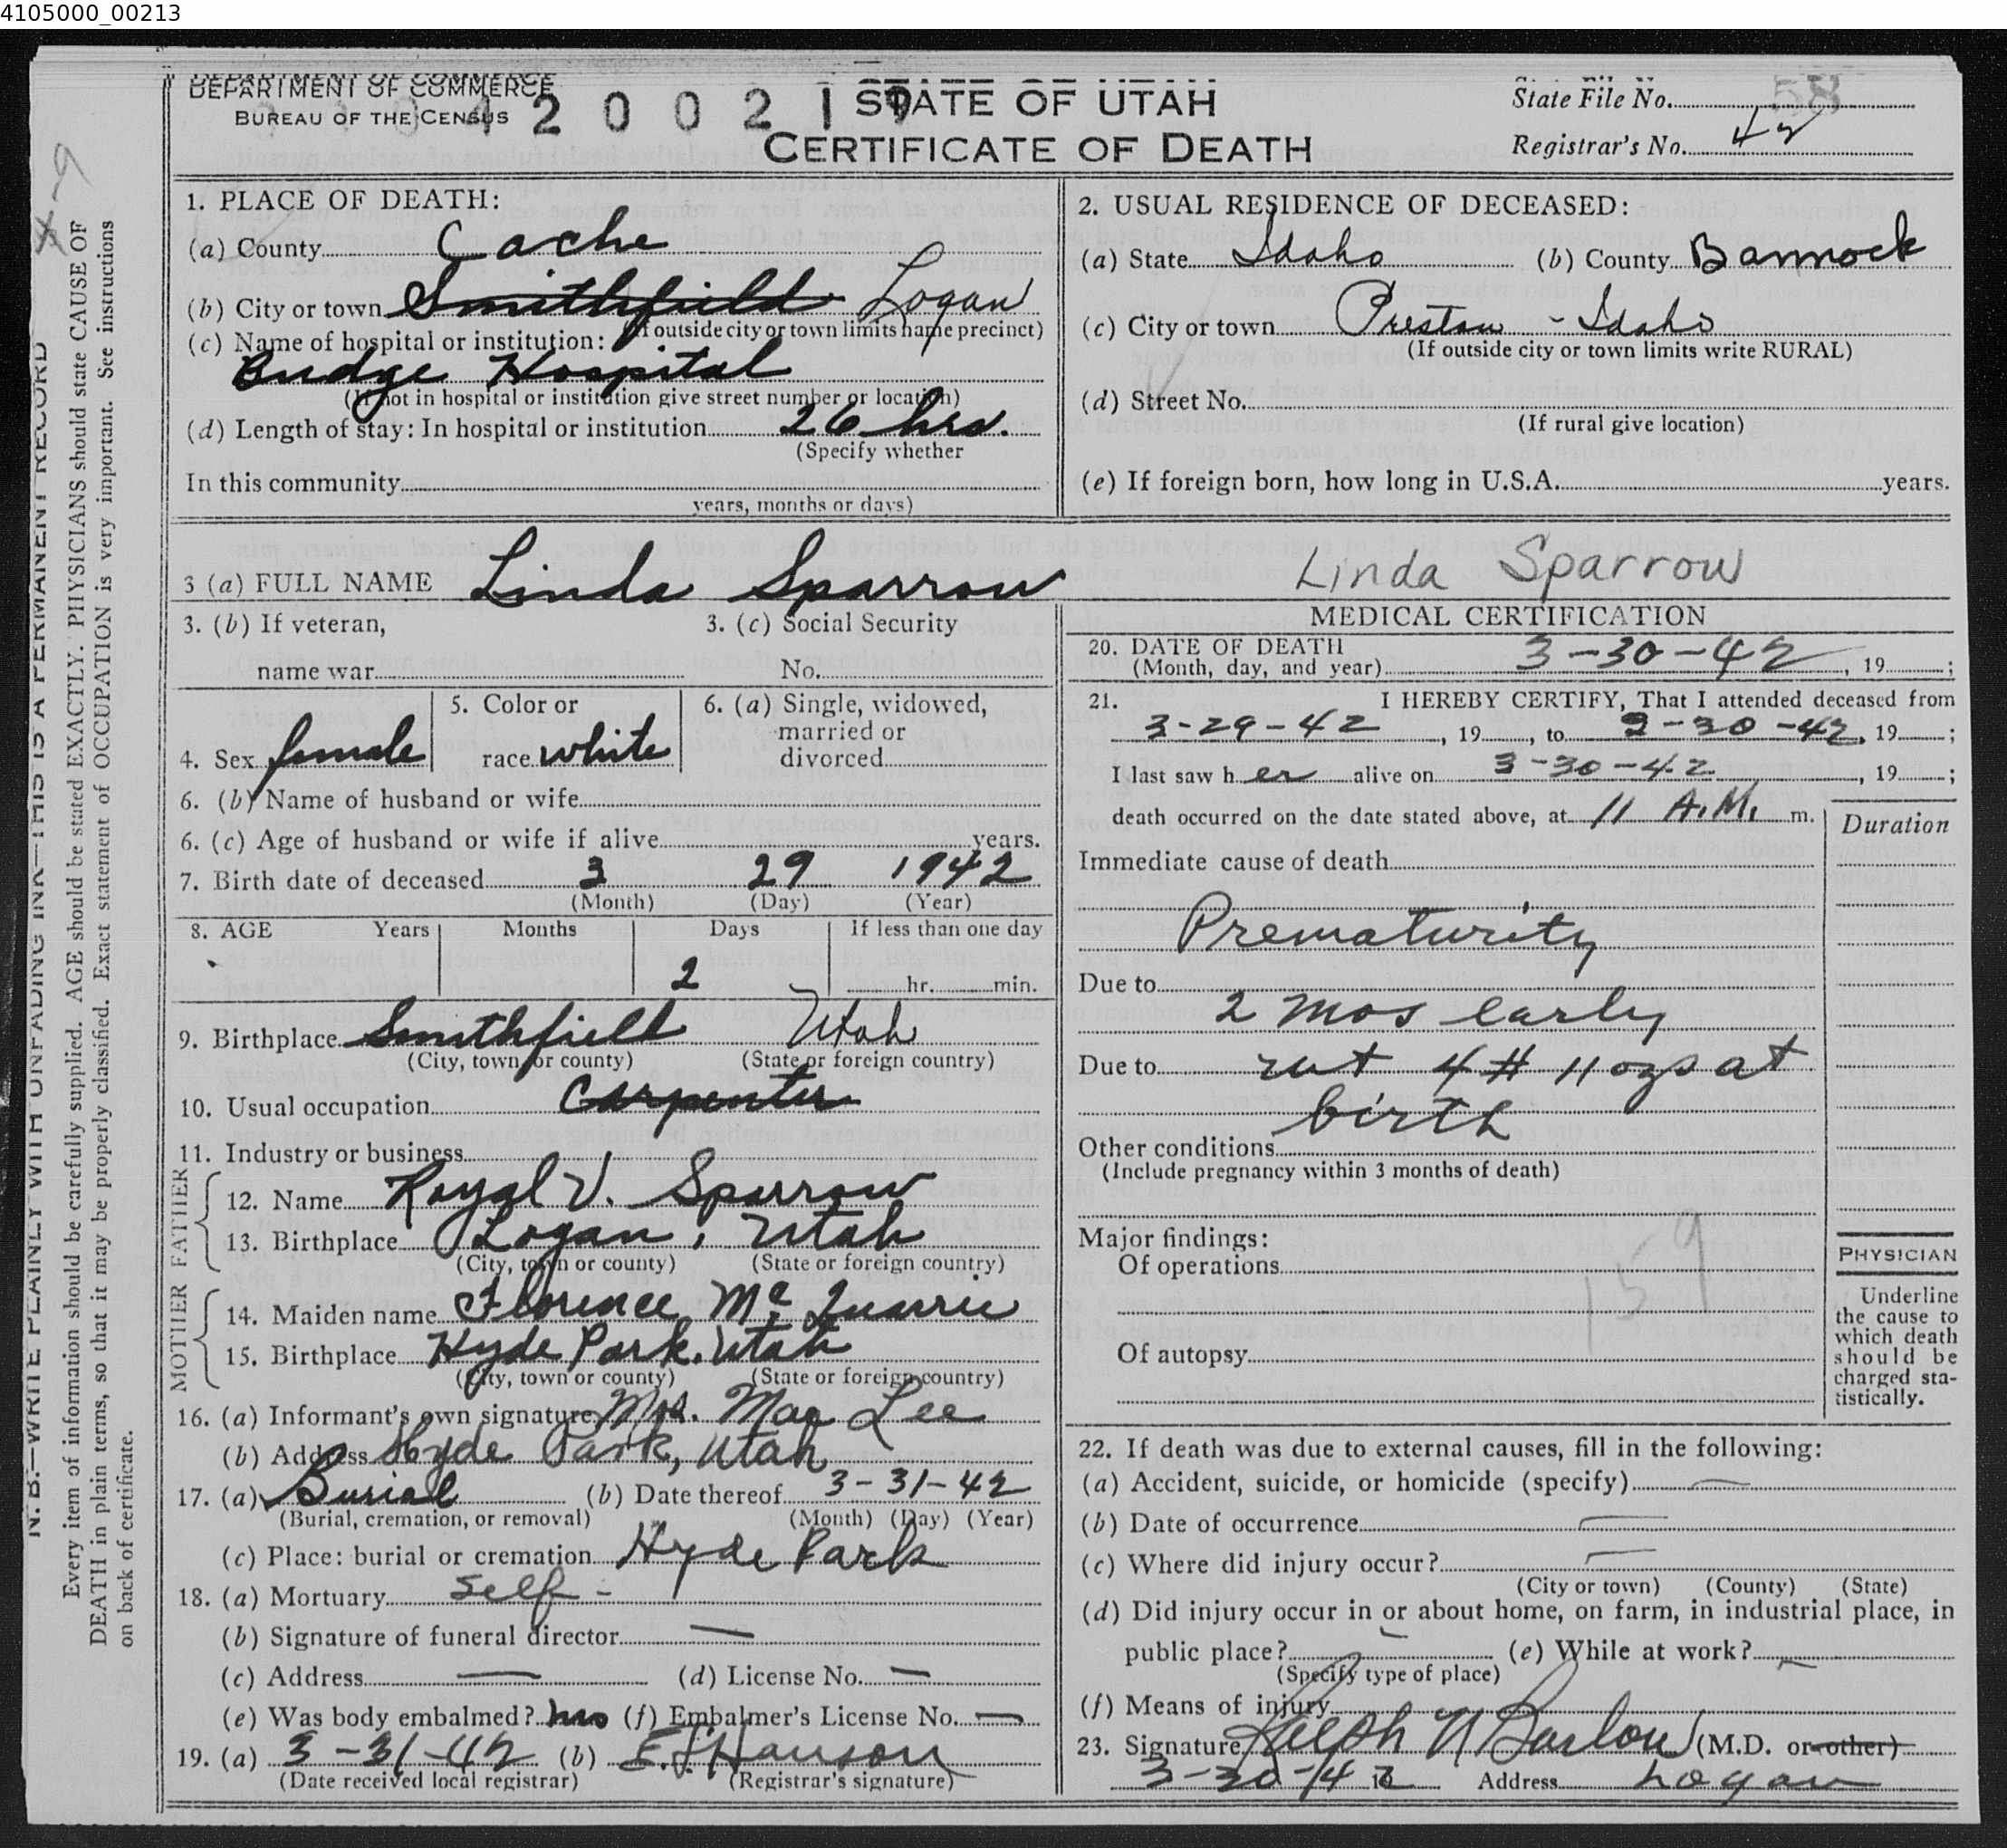 4105000_00213
DEPARTMENT OF COMMERCE
BUREAU OF THE CENSUS
4 2 0 0 2 1 9
STATE OF UTAH
CERTIFICATE OF DEATH
State File No. 58
Registrar's No. 42
1. PLACE OF DEATH:
(a) County Cache
(b) City or town Smithfield Logan
(If outside city or town limits name precinct)
(c) Name of hospital or institution:
Budge Hospital
(If not in hospital or institution give street number or location)
(d) Length of stay: In hospital or institution 26 hrs.
(Specify whether
In this community
years, months or days)
2. USUAL RESIDENCE OF DECEASED:
(a) State Idaho (b) County Bannock
(c) City or town Preston - Idaho
(If outside city or town limits write RURAL)
(d) Street No.
(If rural give location)
(e) If foreign born, how long in U.S.A. years.
3 (a) FULL NAME Linda Sparrow
Linda Sparrow
3. (b) If veteran,
name war
3. (c) Social Security
No.
4. Sex female
5. Color or
race white
6. (a) Single, widowed,
married or
divorced
6. (b) Name of husband or wife
6. (c) Age of husband or wife if alive years.
7. Birth date of deceased 3 29 1942
(Month) (Day) (Year)
8. AGE Years Months Days If less than one day
2 hr. min.
9. Birthplace Smithfield Utah
(City, town, or county) (State or foreign country)
10. Usual occupation Carpenter
11. Industry or business
FATHER
12. Name Royal V. Sparrow
13. Birthplace Logan, Utah
(City, town or county) (State or foreign country)
MOTHER
14. Maiden name Florence Mc Quarrie
15. Birthplace Hyde Park, Utah
(City, town or county) (State or foreign country)
16. (a) Informant's own signature Mrs. Mae Lee
(b) Address Hyde Park, Utah
17. (a) Burial (b) Date thereof 3-31-42
(Burial, cremation, or removal) (Month) (Day) (Year)
(c) Place: burial or cremation Hyde Park
18. (a) Mortuary Self -
(b) Signature of funeral director —
(c) Address — (d) License No. —
(e) Was body embalmed? no (f) Embalmer's License No. —
19. (a) 3-31-42 (b) E. J. Hanson
(Date received local registrar) (Registrar's signature)
MEDICAL CERTIFICATION
20. DATE OF DEATH
(Month, day, and year) 3-30-42, 19 ;
21. I HEREBY CERTIFY, That I attended deceased from
3-29-42, 19 , to 3-30-42, 19 ;
I last saw h er alive on 3-30-42, 19 ;
death occurred on the date stated above, at 11 A.M. m.
Duration
Immediate cause of death
Prematurity
Due to
2 mos early
Due to wt 4 # 11 ozs at
birth
Other conditions
(Include pregnancy within 3 months of death)
Major findings:
Of operations
159
Of autopsy
PHYSICIAN
Underline
the cause to
which death
should be
charged sta-
tistically.
22. If death was due to external causes, fill in the following:
(a) Accident, suicide, or homicide (specify) —
(b) Date of occurrence —
(c) Where did injury occur? —
(City or town) (County) (State)
(d) Did injury occur in or about home, on farm, in industrial place, in
public place? — (e) While at work? —
(Specify type of place)
(f) Means of injury
23. Signature Ralph N Barlow (M.D. or other)
3-30-42 Address Logan
N. B.—WRITE PLAINLY WITH UNFADING INK—THIS IS A PERMANENT RECORD
Every item of information should be carefully supplied. AGE should be stated EXACTLY. PHYSICIANS should state CAUSE OF
DEATH in plain terms, so that it may be properly classified. Exact statement of OCCUPATION is very important. See instructions
on back of certificate.